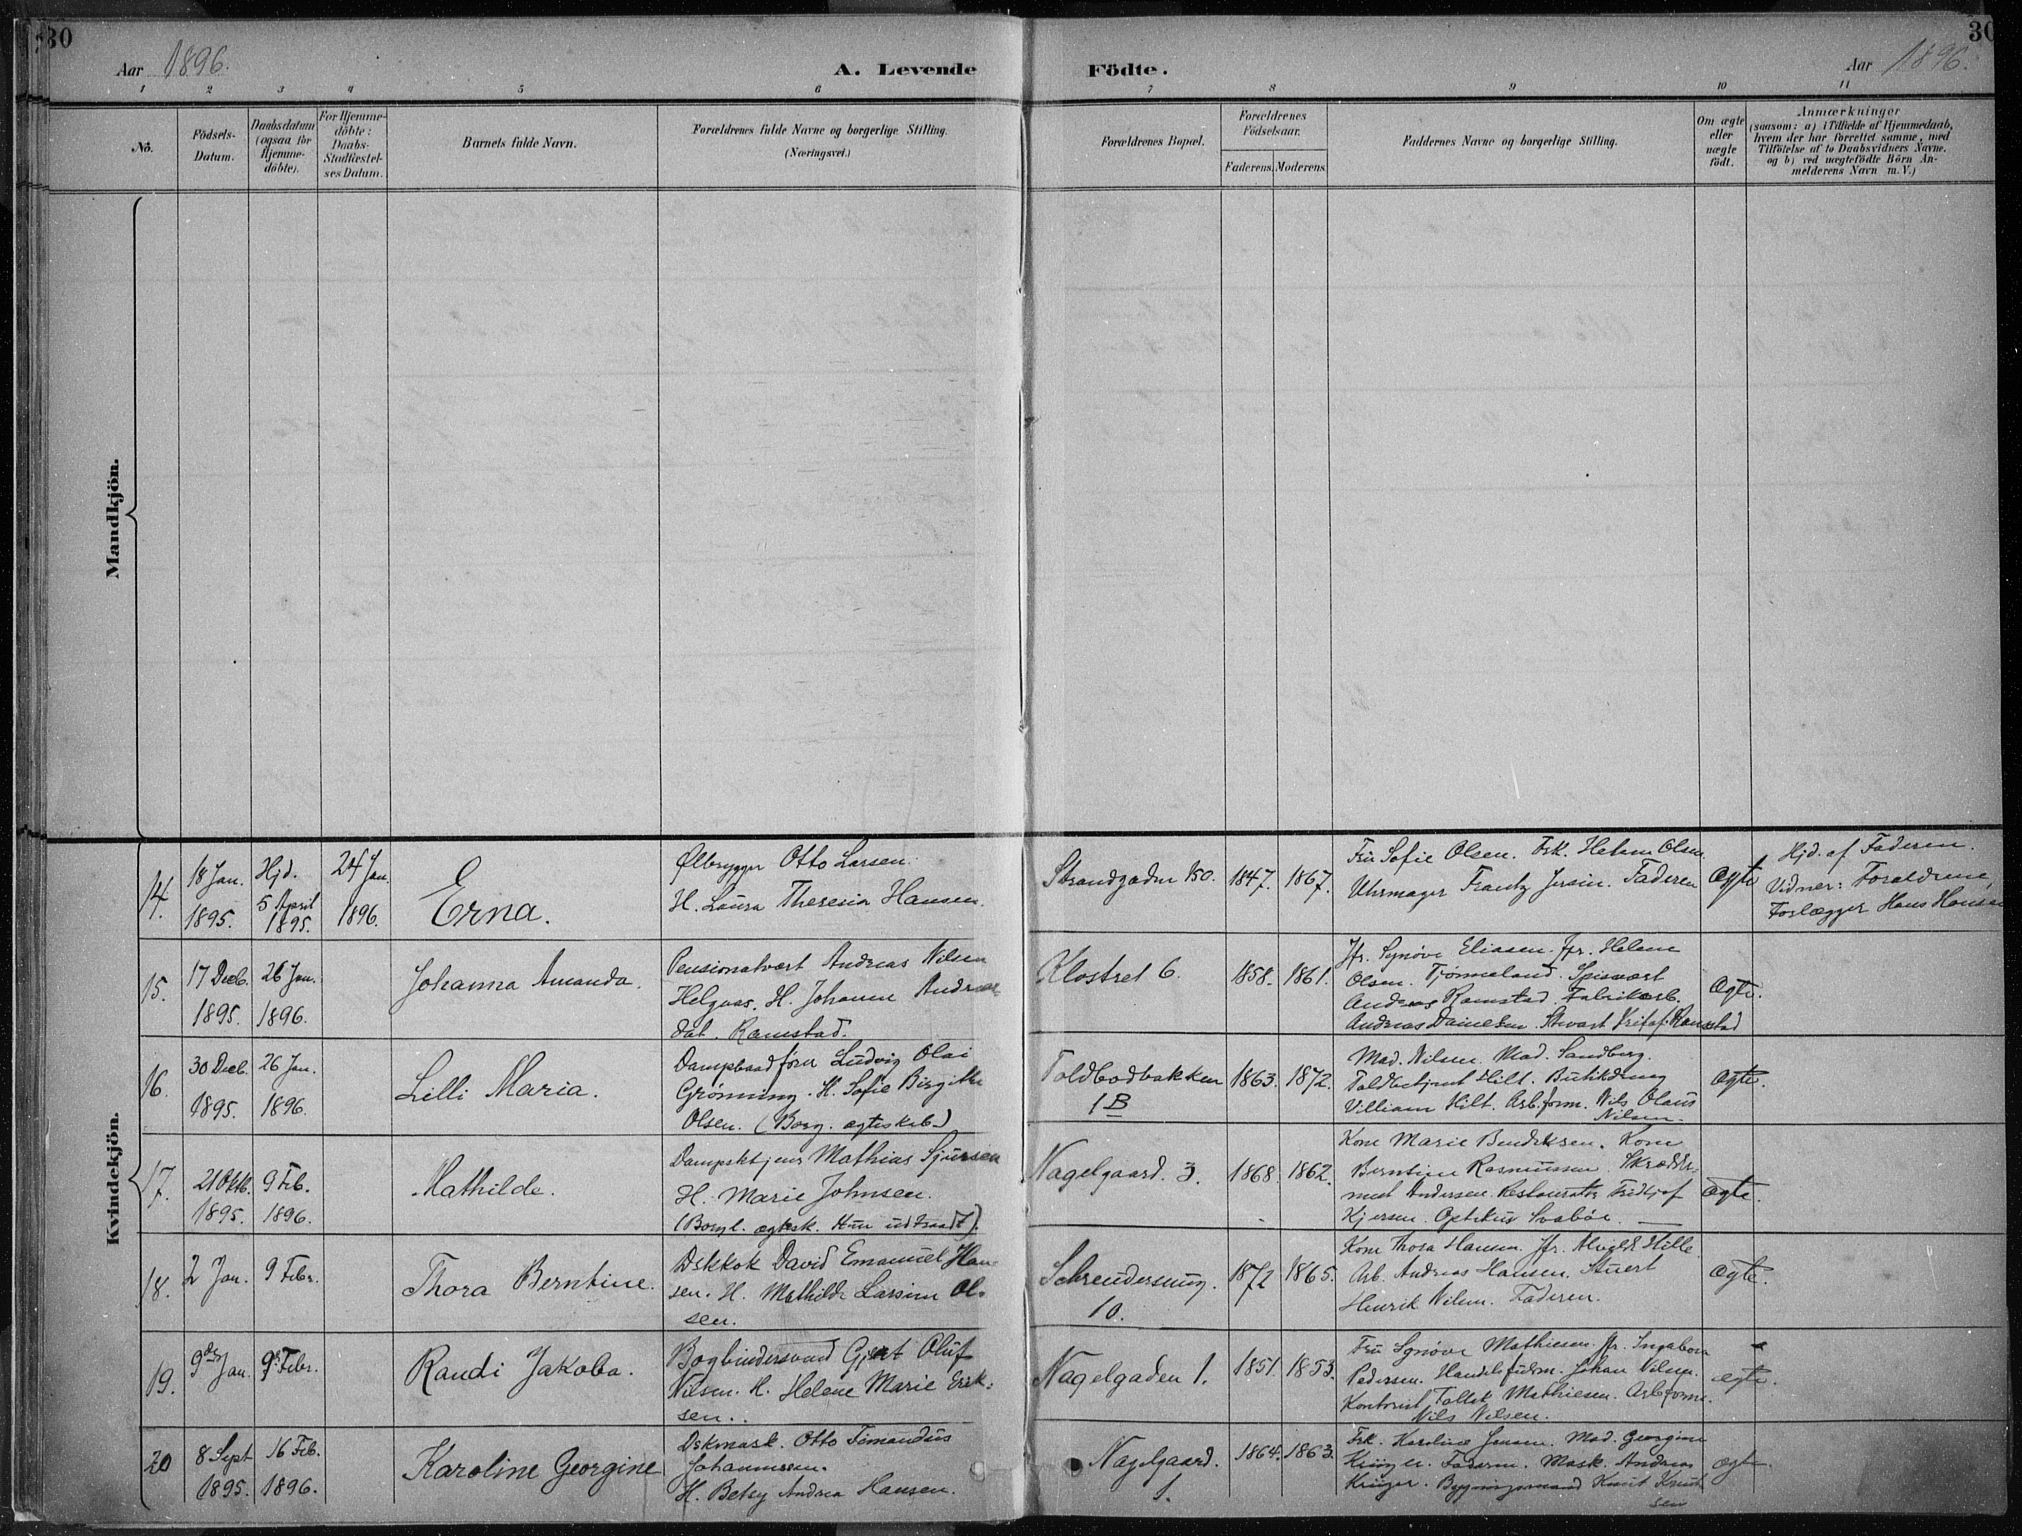 30
30
Aar 1896.
A. Levende Födte.
Aar 1896.
1 2 3 4 5 6 7 8 9 10 11
No.
Födsels-Datum.
Daabsdatum (ogsaa for Hjemme-döbte).
For Hjemme-döbte: Daabs-Stadfæstel-ses Datum.
Barnets fulde Navn.
Forældrenes fulde Navne og borgerlige Stilling.
(Næringsvei.)
Forældrenes Bopæl.
Forældrenes Födselsaar.
Faderens. Moderens.
Faddernes Navne og borgerlige Stilling.
Om ægte eller uægte födt.
Anmærkninger
(saasom: a) i Tilfælde af Hjemmedaab,
hvem der har forrettet samme, med
Tilföielse af to Daabsvidners Navne.
og b) ved uægtefödte Börn An-
melderens Navn m. V.)
Mandkjön.
Kvindekjön.
14.
18 Jan.
1895.
Hjd.
5 April
1895.
24 Jan.
1896.
Erna.
Ølbrygger Otto Larsen.
H. Laura Theresia Hansen.
Strandgaden 150.
1847. 1867.
Fru Sofie Olsen. Frk. Helene Olsen.
Uhrmager Frantz Jersin. Faderen
Ægte
Hjd. af Faderen.
Vidner: Forældrene,
Forlægger Hans Hansen
15.
17 Decb.
1895.
26 Jan.
1896.
Johanna Amanda.
Pensionatvært Andreas Nilsen
Helgaas. H. Johanne Andreas
dat. Ramstad.
Klostret 6.
1858. 1861.
Jfr. Synøve Eliasen. Jfr. Helene
Olsen. Tjønneland. Spisevært
Andreas Ramstad. Fabrikarb.
Andreas Danielsen. Stuart Ramstad
Ægte.
16.
30 Decb.
1895.
26 Jan.
1896.
Lilli Maria.
Dampbaadfører Ludvig Olai
Grønning. H. Sofie Birgitte
Olsen. (Borg. ægteskab.)
Toldbodbakken
1B
1863. 1872.
Mad. Nilsen. Mad. Sandberg.
Toldbetjent Hilt. Butikdreng
Villiam Hilt. Arb.form. Nils Olaus
Nilsen.
Ægte.
17.
21 Oktb.
1895.
9 Feb.
1896.
Mathilde.
Dampsktjener Mathias Sjursen
H. Marie Johnsen.
(Borgl. ægtesk. Hun udtraadt).
Nagelgaard. 3.
1868. 1862.
Kone Marie Bendiksen. Kone
Berntine Rasmussen. Skrædder-
mest Andersen. Restauratør Fridtjof
Kjersen. Optikus Svabøe.
Ægte.
18.
2 Jan.
9 Febr.
Thora Berntine.
Dskkok David Emanuel Han-
sen. H. Mathilde Larsine Ol-
sen.
Schreudersmug.
10.
1872 1865.
Kone Thora Hansen. Jfr. Alvilde Hille.
Arb. Andreas Hansen. Stuert
Henrik Nilsen. Faderen.
Ægte.
19.
9de Jan.
9 Febr.
Randi Jakoba.
Bogbindersvend Gjert Oluf
Nilsen. H. Helene Marie Erik-
sen.
Nagelgaden 1.
1851. 1853.
Fru Synøve Mathiesen. Jfr. Ingeborg
Pedersen. Handelsfuldm. Johan Nilsen.
Kontorist Tollef Mathiesen. Arbform.
Nils Nilsen.
ægte.
20
8 Sept
1895.
16 Feb.
1896.
Karoline Georgine
Dskmask. Otto Fernandus
Johannessen.
H. Betsy Andrea Hansen.
Nagelgaard.
1.
1864. 1863.
Frk. Karoline Jensen. Mad. Georgine
Krüger. Faderen. Mask. Andreas
Krüger. Bygningsmand Knut Knut
sen
ægte.